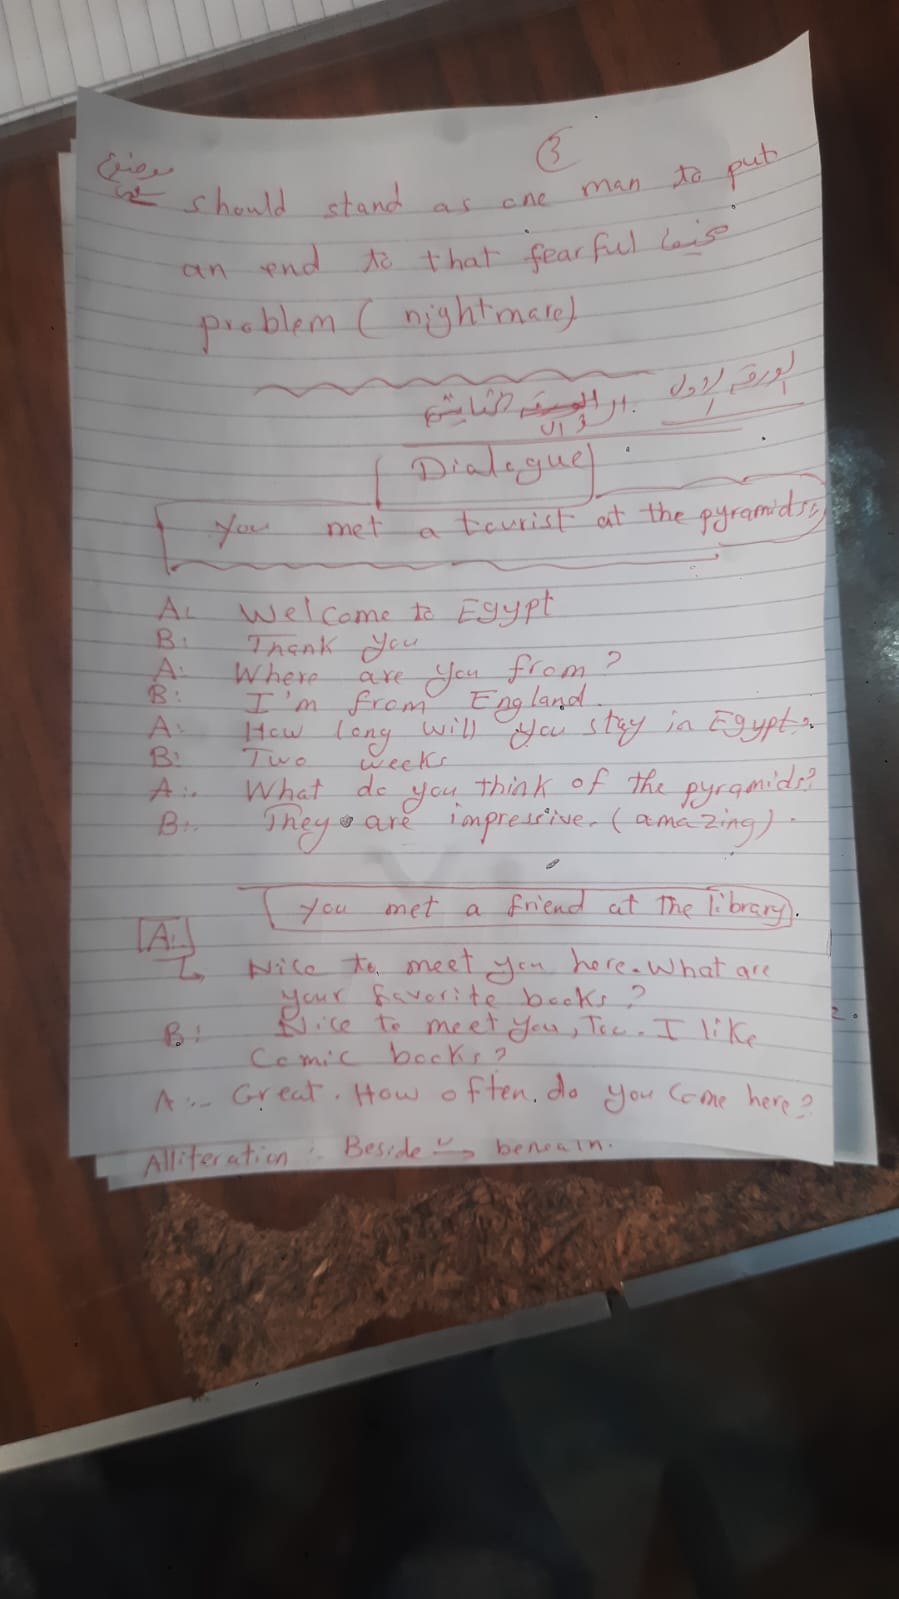 3
موضوع
should stand as one man to put
an end to that fearful مخيف
problem ( nightmare)
الورقة الاولى
الثانية
Dialogue
You met a tourist at the pyramids
A: Welcome to Egypt
B: Thank you
A: Where are you from?
B: I'm from England
A: How long will you stay in Egypt?
B: Two weeks
A:. What do you think of the pyramids?
B:. They are impressive. (amazing).
You met a friend at the library.
A:
Nice to meet you here. What are
your favorite books?
B: Nice to meet you, Too. I like
Comic books?
A:- Great. How often do you come here?
Alliteration : Beside